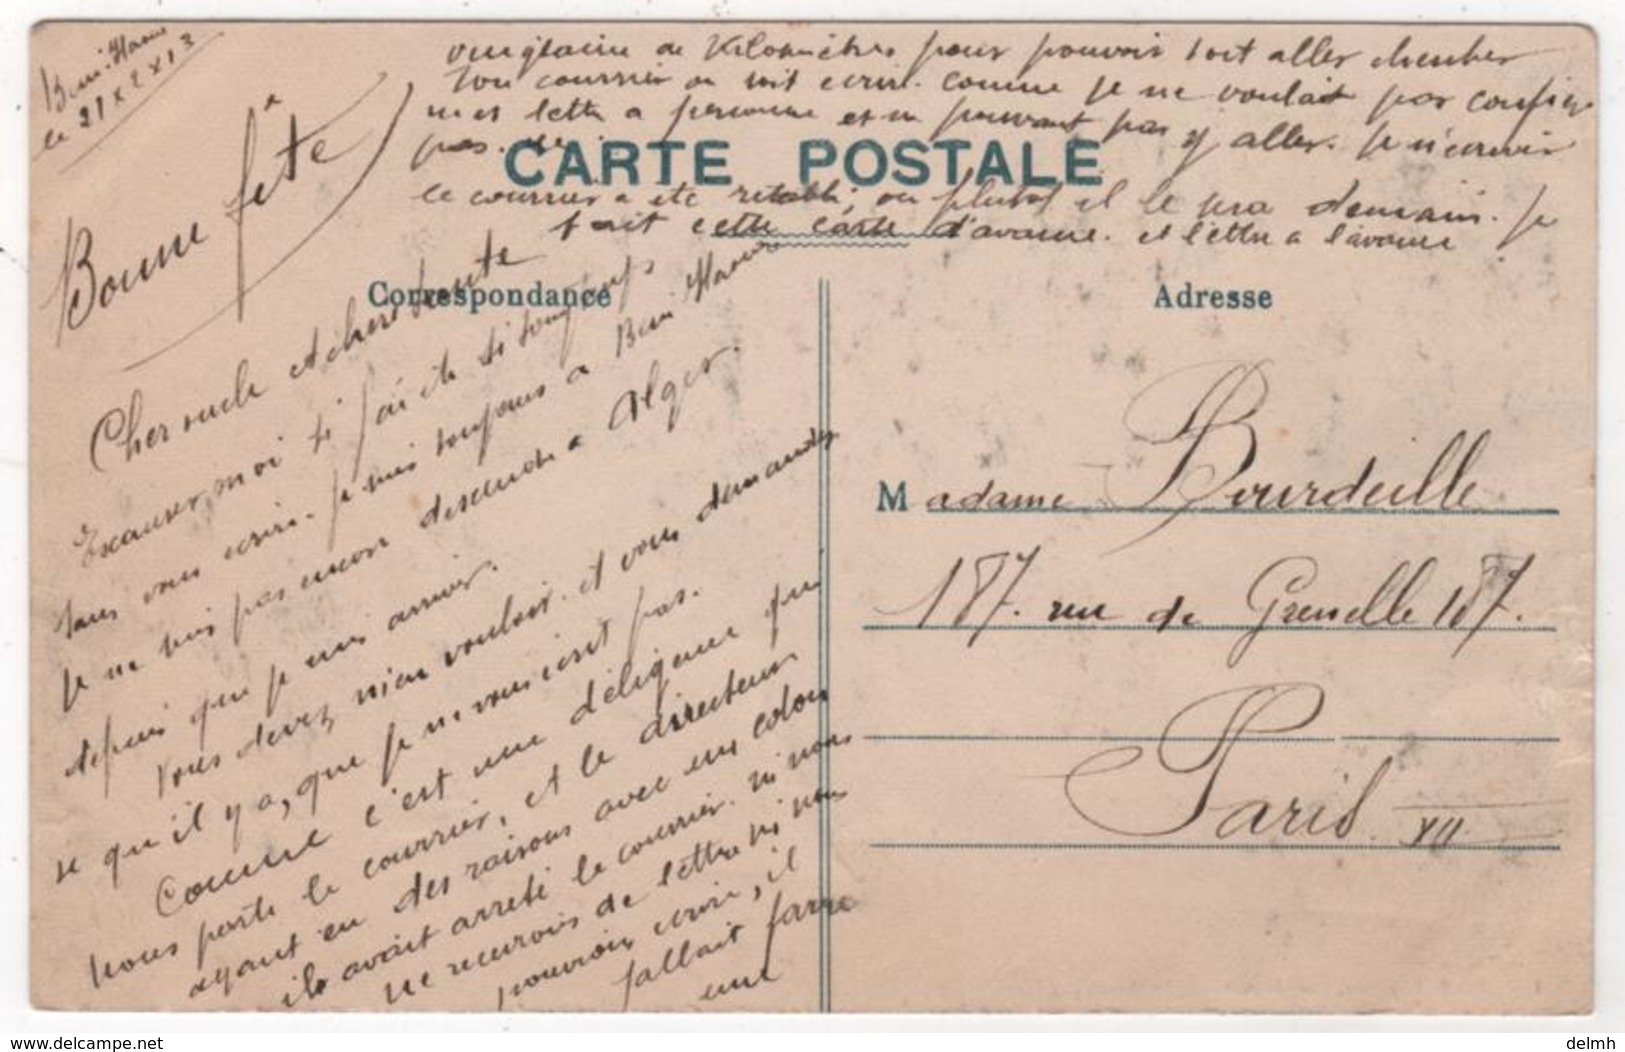 Beni-Haoua
le 21 x 2 x 13
Bonne fête
Cher oncle et chere tante
Excauser, moi si j'ai ete si longtemps
sans vous ecrire. Je suis toujours a Beni Haoua
Je ne suis pas encore descendu a Alger.
depuis que je suis arriver.
Vous devez m'en vouloir. et vous demander
se qu'il y a, que je ne vous ecrit pas.
Comme c'est une déligence qui
nous porte le courrier, et le directeur
ayant eu des raisons avec un colon
ils avait arreté le courrier. ni nous
ne recevrois de lettre ni nous
pouvrois ecrire, il
fallait faire
une
vingtaine de Kilomètres pour pouvoir soit aller chercher
son courrier ou soit ecrire. Comme je ne voulait pas confier
mes lettre a personne et ne pouvant pas y aller. Je n'ecrivis
pas.
CARTE POSTALE
le courrier a ete retabli, ou plutot il le sera demain. Je
fait cette carte d'avance. et lettre a l'avance
Correspondance
Adresse
Madame Bourdeille
187. rue de Grenelle 187.
Paris VII
www.delcampe.net
delmh